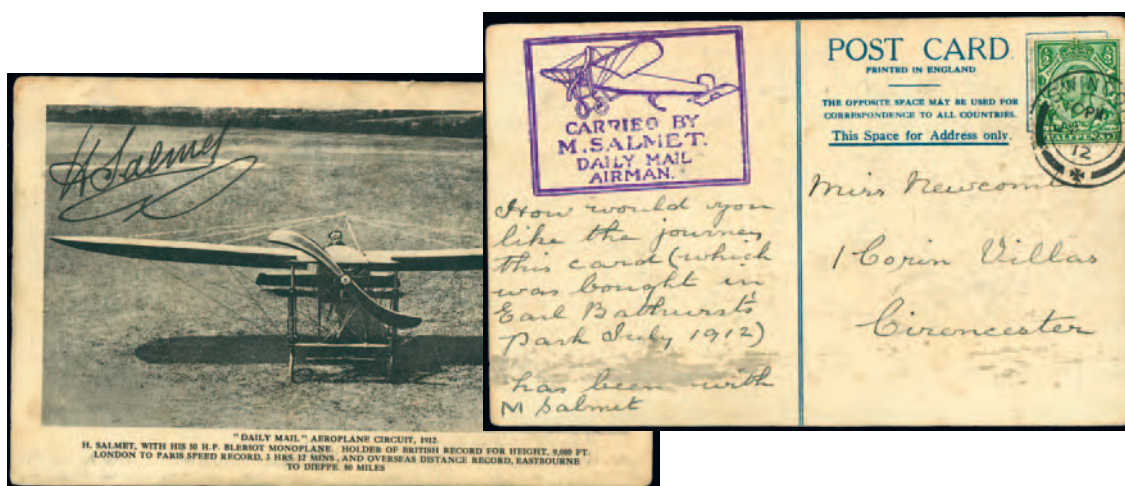 H Salmet
"DAILY MAIL" AEROPLANE CIRCUIT, 1912.
H. SALMET, WITH HIS 50 H.P. BLERIOT MONOPLANE. HOLDER OF BRITISH RECORD FOR HEIGHT, 9,000 FT.
LONDON TO PARIS SPEED RECORD, 3 HRS. 12 MINS., AND OVERSEAS DISTANCE RECORD, EASTBOURNE
TO DIEPPE. 80 MILES
CARRIED BY
M. SALMET.
DAILY MAIL
AIRMAN.
How would you
like the journey
this card (which
was bought in
Earl Bathurst's
Park July 1912)
has been with
M Salmet
POST CARD
PRINTED IN ENGLAND
THE OPPOSITE SPACE MAY BE USED FOR
CORRESPONDENCE TO ALL COUNTRIES.
This Space for Address only.
HALFPENNY
12
Miss Newcomb
1 Corin Villas
Cirencester